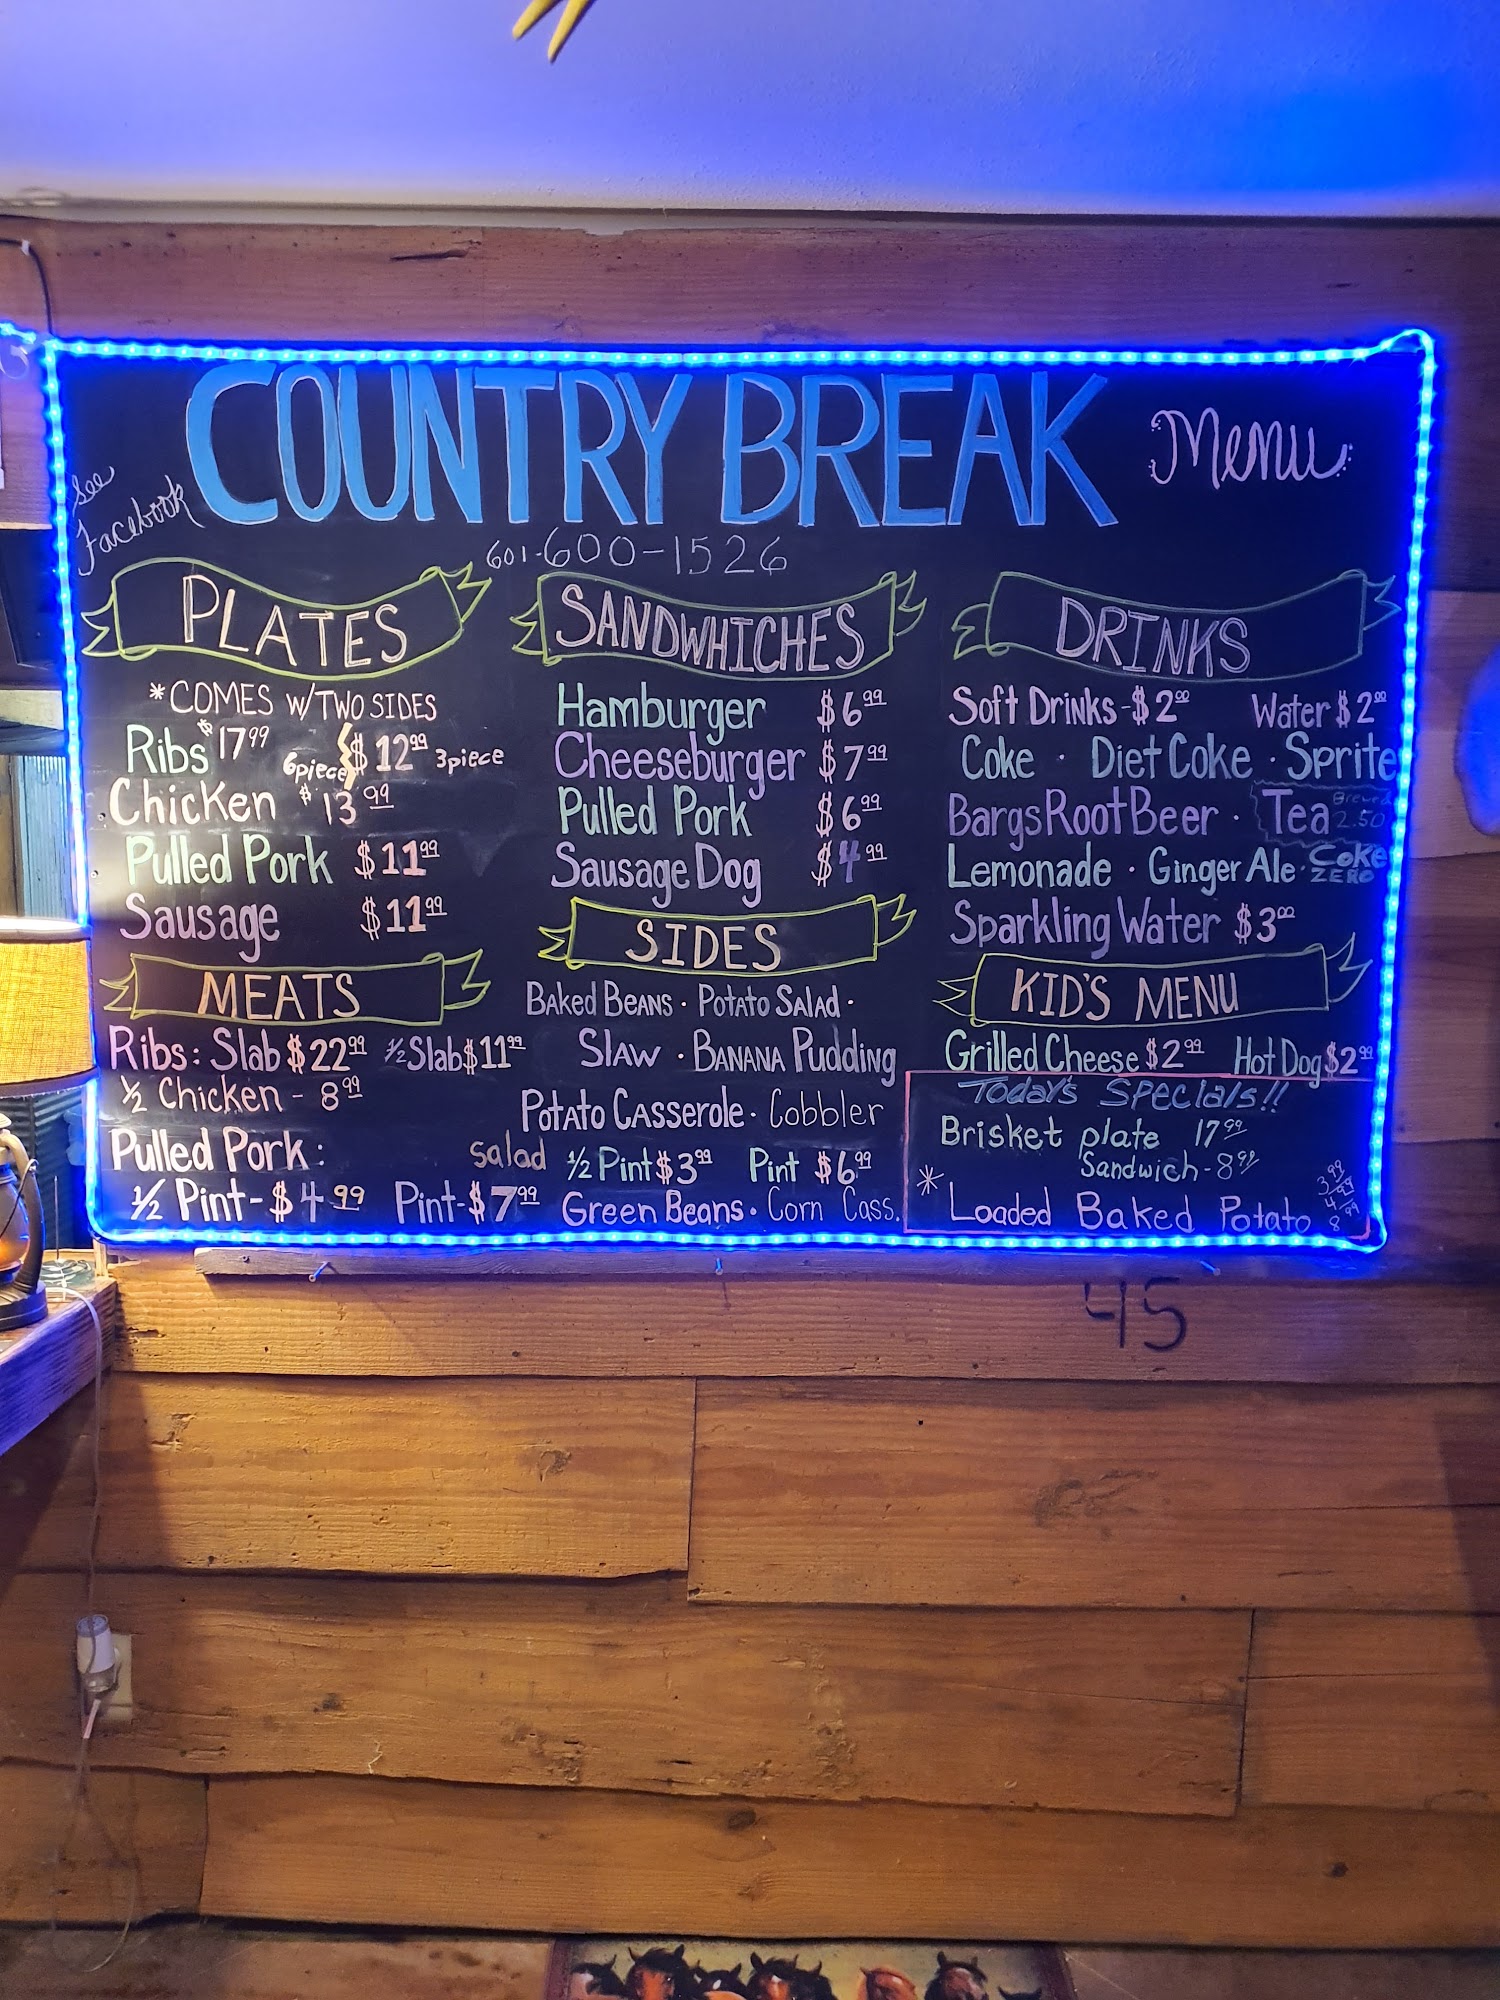 COUNTRY BREAK Menu
See
Facebook
601-600-1526
PLATES
*COMES W/TWO SIDES
Ribs $17 99 6piece $12 99 3piece
Chicken $13 99
Pulled Pork $11 99
Sausage $11 99
MEATS
Ribs: Slab $22 99 1/2 Slab $11 99
1/2 Chicken - 8 99
Pulled Pork:
1/2 Pint - $4 99 Pint - $7 99
SANDWHICHES
Hamburger $6 99
Cheeseburger $7 99
Pulled Pork $6 99
Sausage Dog $4 99
SIDES
BAKED BEANS · POTATO SALAD ·
SLAW · BANANA Pudding
POTATO CASSEROLE · Cobbler
salad 1/2 Pint $3 99 Pint $6 99
Green Beans · Corn Cass.
DRINKS
Soft Drinks - $2 00 Water $2 00
Coke · Diet Coke · Sprite
Bargs Root Beer · Tea 2.50
Lemonade · Ginger Ale · Coke
ZERO
Sparkling Water $3 00
KID'S MENU
Grilled Cheese $2 99 Hot Dog $2 99
Today's Specials!!
Brisket plate 17 99
Sandwich - 8 99
* Loaded Baked Potato 3 99
4 99
8 99
45